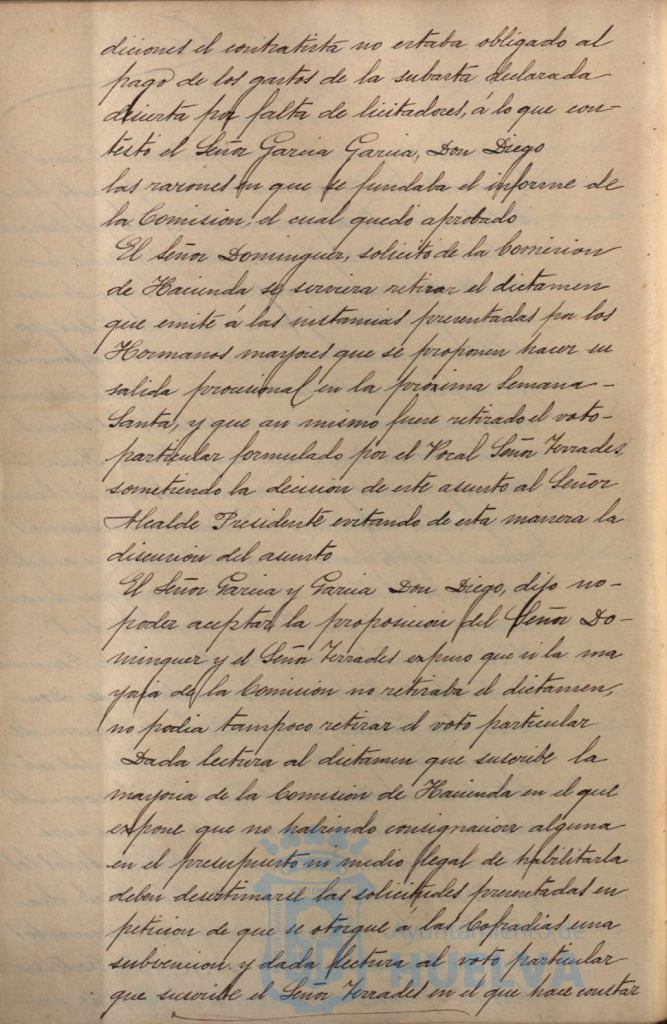 diciones el contratista no estaba obligado al
pago de los gastos de la subasta declarada
desierta por falta de licitadores, á lo que con-
testó el Señor Garcia Garcia, Don Diego
las razones en que se fundaba el informe de
la Comision, el cual quedó aprobado
El Señor Dominguez, solicitó de la Comision
de Hacienda se serviera retirar el dictamen
que emite á las instancias presentadas por los
Hermanos mayores que se proponen hacer su
salida procesional en la proxima Semana-
Santa, y que asi mismo fuese retirado el voto-
particular formulado por el Vocal Señor Terrades,
sometiendo la decision de este asunto al Señor
Alcalde Presidente evitando de esta manera la
discusion del asunto
El Señor Garcia y Garcia Don Diego, dijo no-
poder aceptar la proposicion del Señor Do-
minguez y el Señor Terrades expuso que si la ma
yoria de la Comision no retiraba el dictamen,
no podia tampoco retirar el voto particular
Dada lectura al dictamen que suscribe la
mayoria de la Comision de Hacienda en el que
expone que no habiendo consignacion alguna
en el presupuesto ni medio legal de habilitarla
deben desestimarse las solicitudes presentadas en
peticion de que se otorgue á las Cofradias una
subvencion y dada lectura al voto particular
que suscribe el Señor Terrades en el que hace constar
Ayuntamiento de
HUELVA